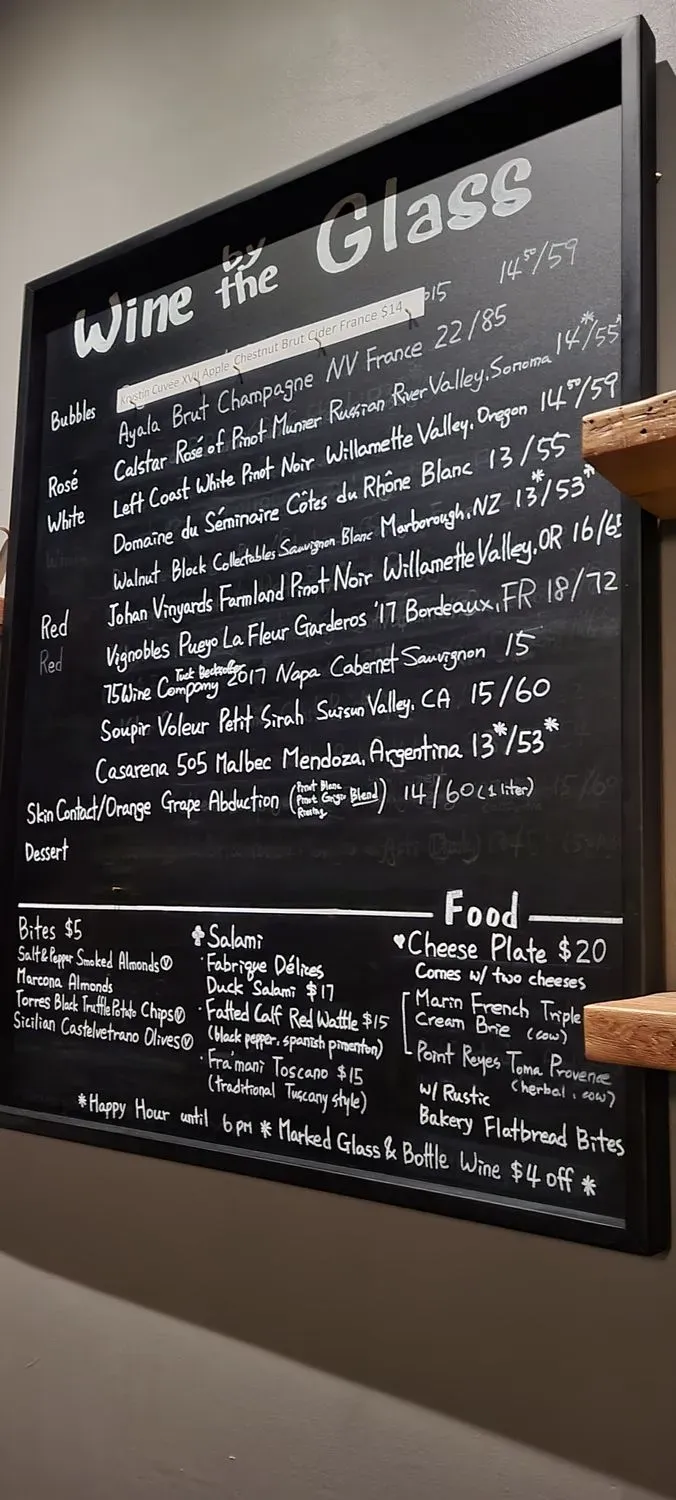 Wine by the Glass
Krystin Cuvée XVII Apple Chestnut Brut Cider France $14
$15 14⁵⁰/59
Bubbles
Ayala Brut Champagne NV France 22/85
Rosé
Calstar Rosé of Pinot Munier Russian River Valley, Sonoma 14*/55*
White
Left Coast White Pinot Noir Willamette Valley, Oregon 14⁵⁰/59
Domaine du Séminaire Côtes du Rhône Blanc 13/55
Walnut Block Collectables Sauvignon Blanc Marborough, NZ 13*/53*
Red
Johan Vinyards Farmland Pinot Noir Willamette Valley, OR 16/65
Red
Vignobles Pueyo La Fleur Garderos '17 Bordeaux, FR 18/72
Tuck Beckstoffer
75 Wine Company 2017 Napa Cabernet Sauvignon 15
Soupir Voleur Petit Sirah Suisun Valley, CA 15/60
Casarena 505 Malbec Mendoza, Argentina 13*/53*
Skin Contact/Orange Grape Abduction (Pinot Blanc Pinot Grigio Riesling Blend) 14/60 (1 liter)
Dessert
Food
Bites $5
Salt & Pepper Smoked Almonds Ⓥ
Marcona Almonds
Torres Black Truffle Potato Chips Ⓥ
Sicilian Castelvetrano Olives Ⓥ
♣ Salami
· Fabrique Délices
Duck Salami $17
· Fatted Calf Red Wattle $15
(black pepper, spanish pimenton)
· Fra'mani Toscano $15
(traditional Tuscany style)
♥ Cheese Plate $20
Comes w/ two cheeses
Marin French Triple
Cream Brie (cow)
Point Reyes Toma Provence
(herbal, cow)
w/ Rustic
Bakery Flatbread Bites
*Happy Hour until 6 PM * Marked Glass & Bottle Wine $4 off *